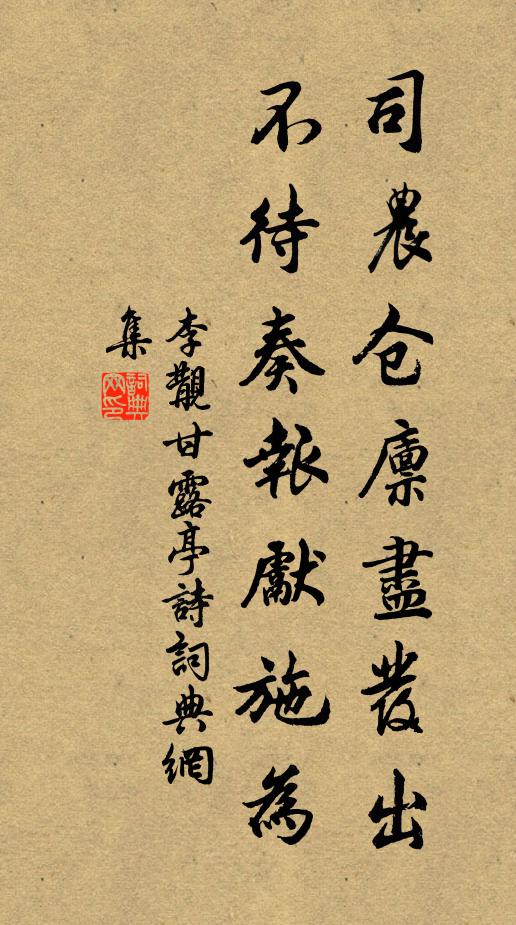 司農仓廪盡發出
不待奏報獻施為
李覯甘露亭詩詞典網
集
詞典網印